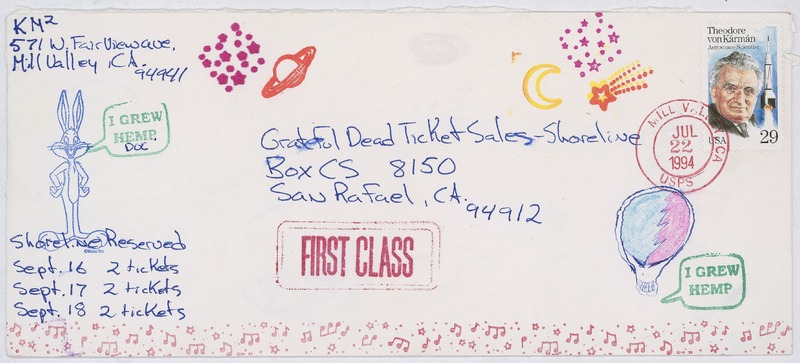 KM²
571 W. Fairview ave.
Mill Valley, CA.
94941
I GREW
HEMP
DOC
Grateful Dead Ticket Sales - Shoreline
Box CS 8150
San Rafael, CA.
94912
Theodore
von Kármán
Aerospace Scientist
USA 29
MILL VALLEY CA
JUL
22
1994
USPS
FIRST CLASS
Shoreline Reserved
Sept. 16 2 tickets
Sept. 17 2 tickets
Sept. 18 2 tickets
I GREW
HEMP